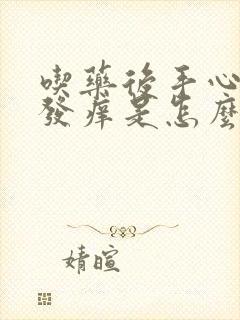 喫藥後手心
發癢是怎麼
婧暄